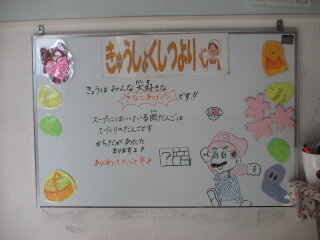 きゅうしょくしつより
きょうは みんな大好きな
きなこあげパンです!!
スープにはいっている肉だんごは
てづくりのだんごです
からだがあたた
まりますよ♪
あじわってたべてネ♪
?